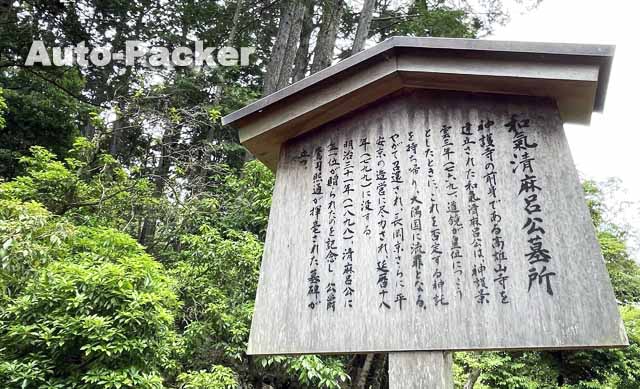 Auto-Packer
和氣清麻呂公墓所
神護寺の前身である高雄山寺を
建立された和氣清麻呂公は、神護景
雲三年(七六九)道鏡が皇位につこう
としたときに、これを否定する神託
を持ち帰り、大隅国に流罪となる。
やがて召還され、長岡京さらに平
安京の造営に尽力され、延暦十八
年(七九九)に没する。
明治三十一年(一八九八)、清麻呂公に
正一位が贈られたのを記念し、公爵
鷹司煕通が揮毫された墓碑が
立つ。